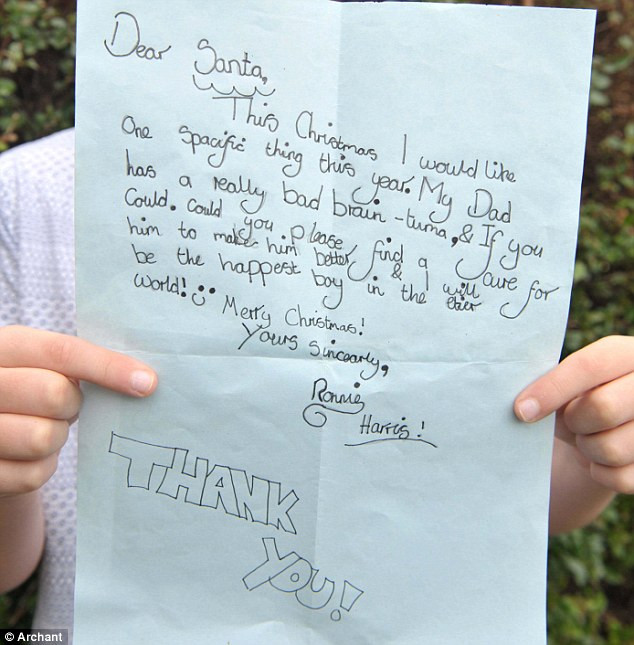 Dear Santa,
This Christmas I would like
One spacific thing this year. My Dad
has a really bad brain-tuma, & If you
Could. Could you please, find a cure for
him to make him better & I will
be the happest boy in the
world! Merry Christmas!
Yours sincearly,
Ronnie
Harris!
THANK
YOU!
© Archant